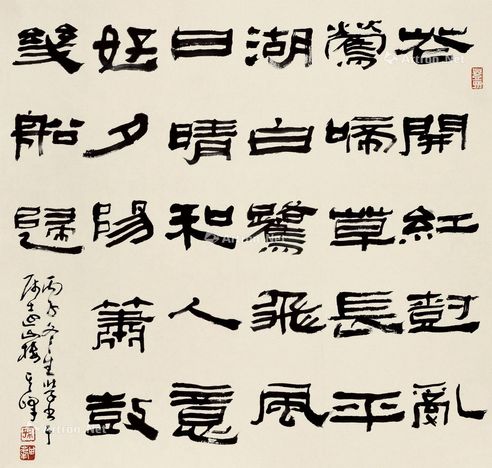 花開紅樹亂
鶯啼草長平
湖白鷺飛風
日晴和人意
好夕陽簫鼓
幾船歸
丙子冬
其峰
Artron.Net